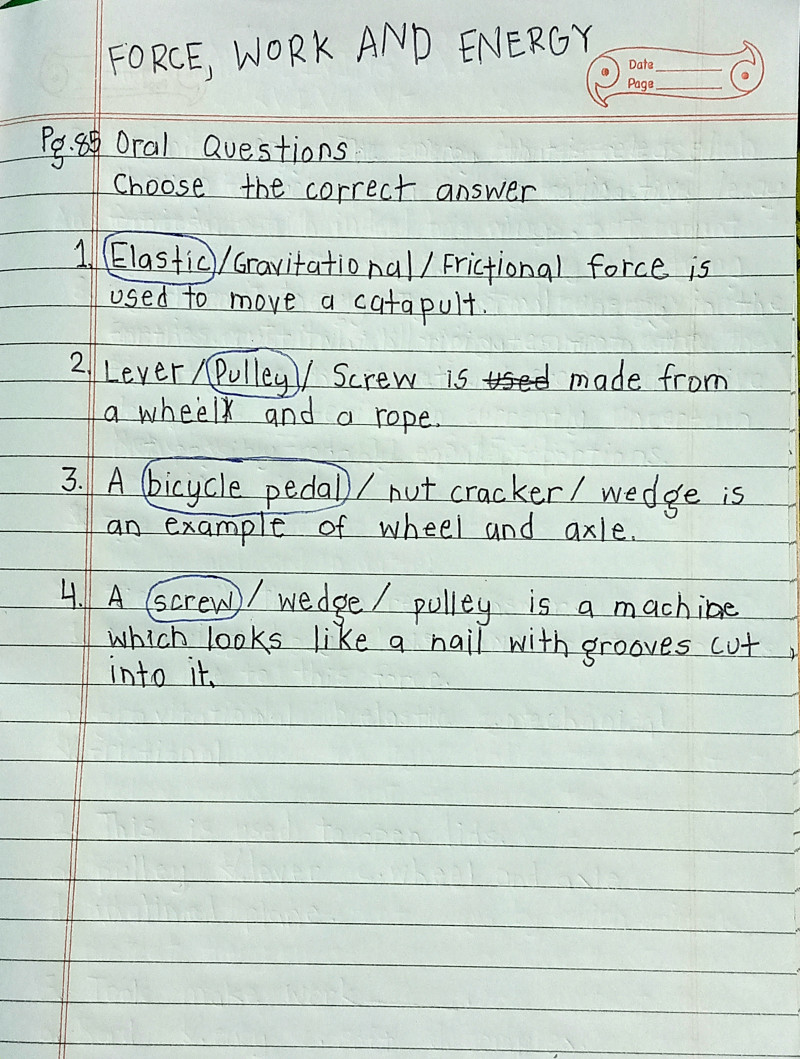 FORCE, WORK AND ENERGY
Date
Page
Pg.85 Oral Questions
Choose the correct answer
1. Elastic/Gravitational/Frictional force is
used to move a catapult.
2. Lever/Pulley/Screw is used made from
a wheel and a rope.
3. A bicycle pedal/nut cracker/wedge is
an example of wheel and axle.
4. A screw/wedge/pulley is a machine
which looks like a nail with grooves cut
into it.